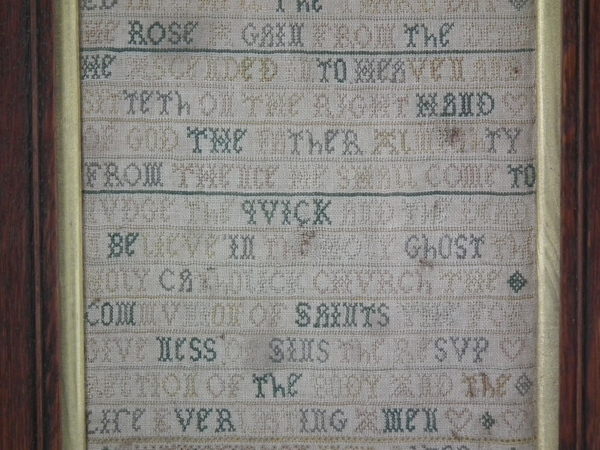 THE
HE ROSE A GAIN FROM The DEAD
HE ASCENDED IN TO HEAVEN AND
SITTETh ON THE RIGHT HAND
OF GOD THE FATHER ALMIGHTY
FROM THENCE HE SHALL COME TO
IVDGE The QVICK AND THE DEAD
I BELIEVE IN THE HOLY GHOST THE
HOLY CATHOLICK CHVRCH THE
COMMVNION OF SAINTS THE FOR
GIVENESS OF SINS The RESVR
RECTION OF The BODY AND The
LIFE EVER LASTING AMEN